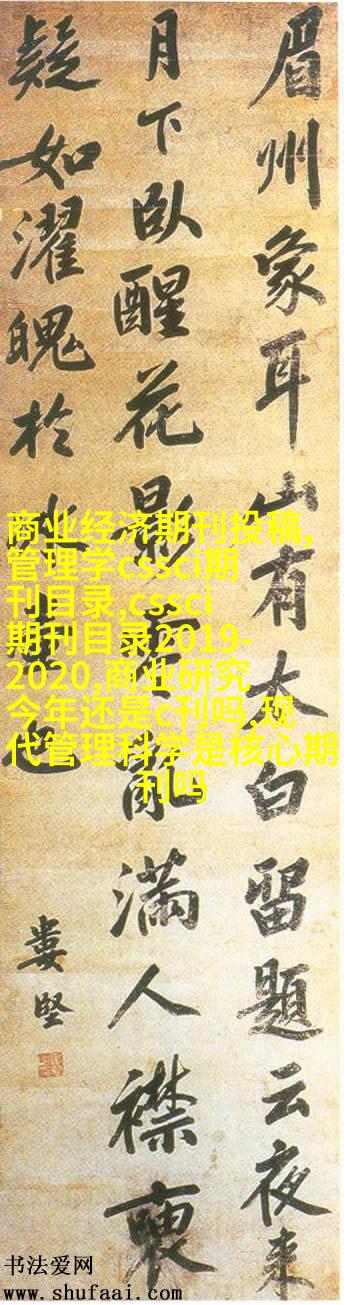 眉州象耳山有太白留題云夜来
月下臥醒花影零亂滿人襟
疑如濯魄於
婁堅
商业经济期刊投稿,
管理学cssci期
刊目录,cssci
期刊目录2019-
2020,商业研究
今年还是c刊吗,现
代管理科学是核心期
刊吗
书法爱网
www.shufaai.com